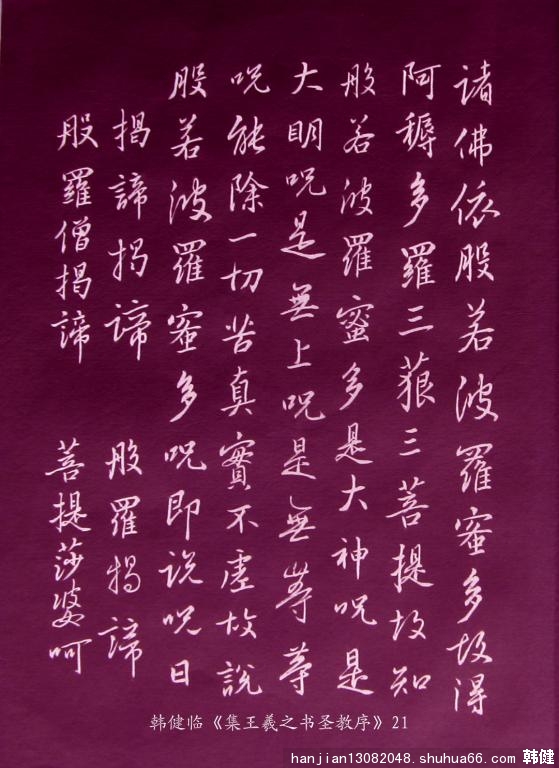 諸佛依般若波羅蜜多故得
阿耨多羅三藐三菩提故知
般若波羅蜜多是大神呪是
大明呪是無上呪是無等等
呪能除一切苦真實不虛故說
般若波羅蜜多呪即說呪曰
揭諦揭諦 般羅揭諦
般羅僧揭諦 菩提莎婆呵
韩健临《集王羲之书圣教序》21
hanjian13082048.shuhua66.com 韩健